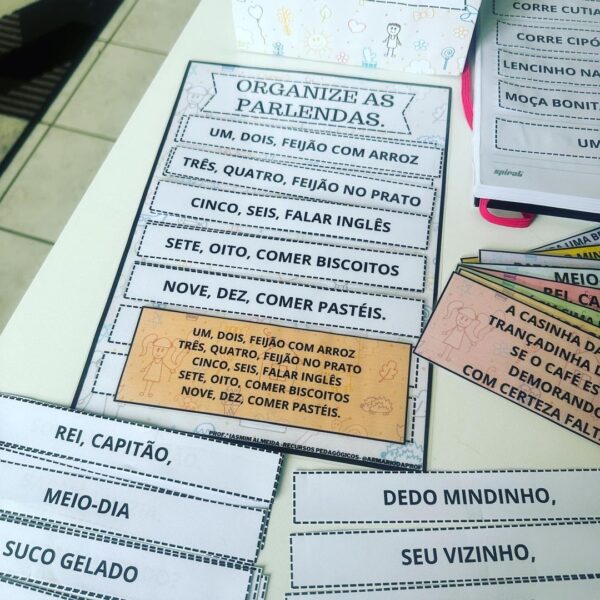 ORGANIZE AS
PARLENDAS.
UM, DOIS, FEIJÃO COM ARROZ
TRÊS, QUATRO, FEIJÃO NO PRATO
CINCO, SEIS, FALAR INGLÊS
SETE, OITO, COMER BISCOITOS
NOVE, DEZ, COMER PASTÉIS.
UM, DOIS, FEIJÃO COM ARROZ
TRÊS, QUATRO, FEIJÃO NO PRATO
CINCO, SEIS, FALAR INGLÊS
SETE, OITO, COMER BISCOITOS
NOVE, DEZ, COMER PASTÉIS.
PROF.ª JASMIM ALMEIDA-RECURSOS PEDAGÓGICOS. @ARMARIODAPROF
CORRE CUTIA
CORRE CIPÓ
LENCINHO NA
MOÇA BONITA
UM
spiral
UMA
MEIO
REI, CA
A CASINHA DA
TRANÇADINHA D
SE O CAFÉ ES
DEMORANDO
COM CERTEZA FALT
REI, CAPITÃO,
MEIO-DIA
SUCO GELADO
DEDO MINDINHO,
SEU VIZINHO,